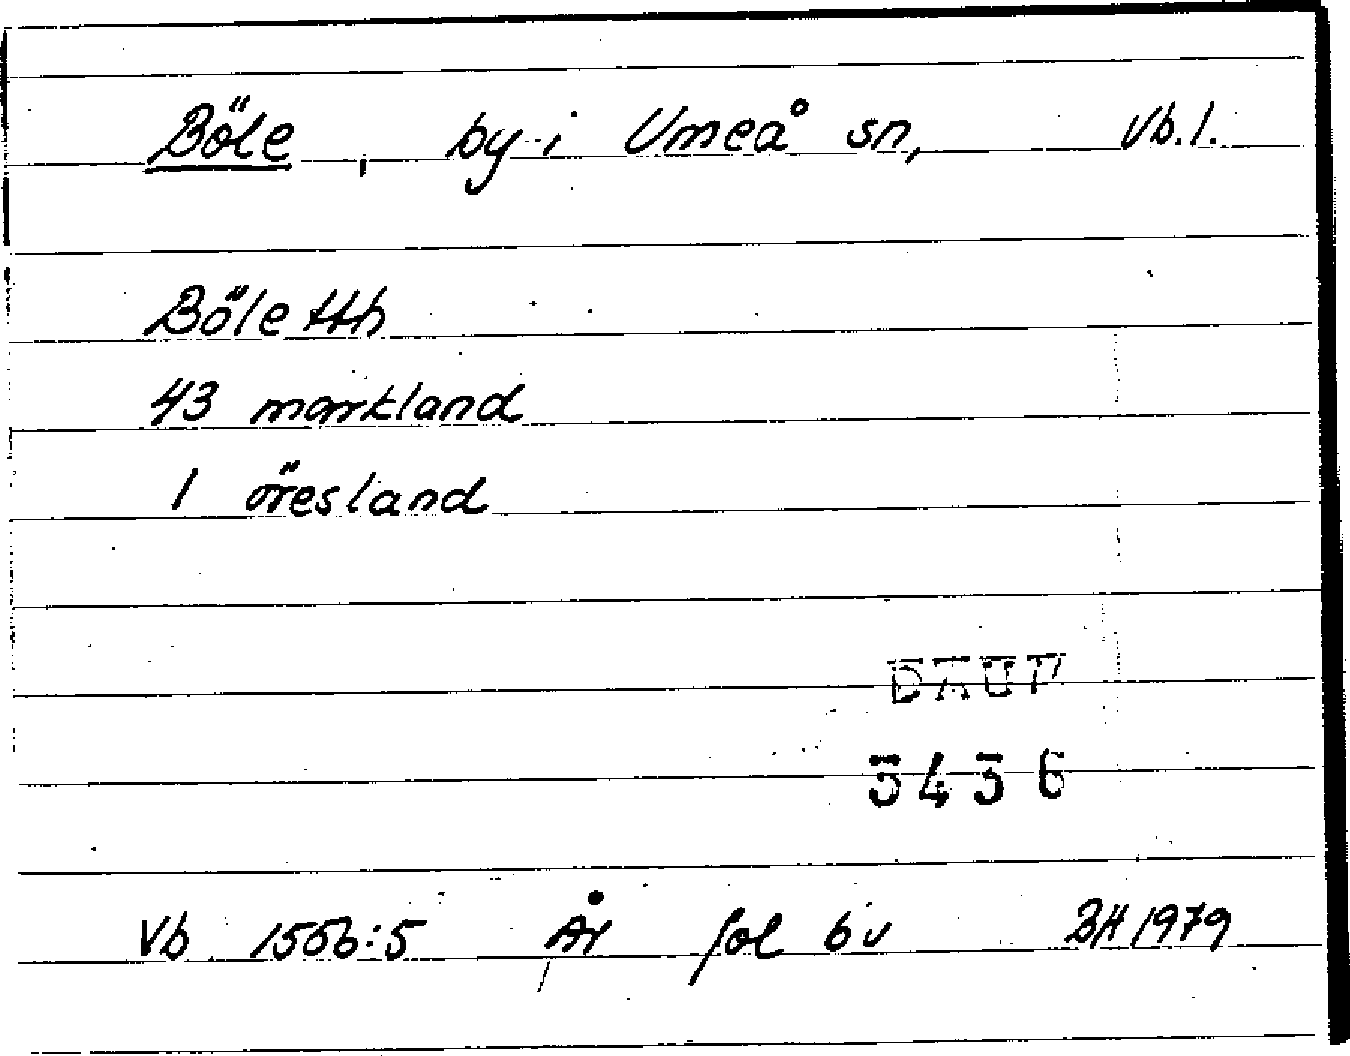 Böle, by i Umeå sn, Vb.l.
Böle tth
43 markland
1 öresland
DAUM
5456
Vb 1556:5 År fol 6v BH 1979